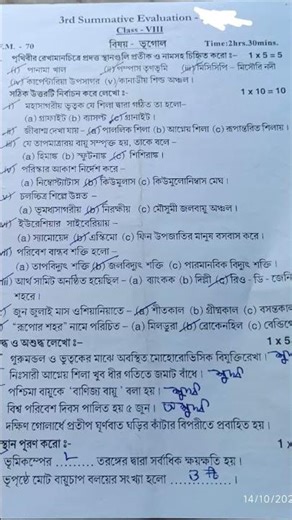 3rd Summative Evaluation -
Class - VIII
F.M. - 70 বিষয় - ভূগোল Time:2hrs.30mins.
পৃথিবীর রেখামানচিত্রে প্রদত্ত স্থানগুলি প্রতীক ও নামসহ চিহ্নিত করো :- 1 x 5 = 5
(i) পানামা খাল (ii) পম্পাস তৃণভূমি (iii) মিসিসিপি - মিসৌরি নদী
(iv) কার্পেন্টারিয়া উপসাগর (v) কানাডীয় শিল্ড অঞ্চল।
সঠিক উত্তরটি নির্বাচন করে লেখো :- 1 x 10 = 10
মহাসাগরীয় ভূত্বক যে শিলা দ্বারা গঠিত তা হলো-
(a) গ্রাফাইট (b) ব্যাসল্ট (c) গ্রানাইট।
জীবাশ্ম দেখা যায় - (a) পাললিক শিলা (b) আগ্নেয় শিলা (c) রূপান্তরিত শিলায়।
যে তাপমাত্রায় বায়ু সম্পৃক্ত হয়, তাকে বলে -
(a) হিমাঙ্ক (b) স্ফুটনাঙ্ক (c) শিশিরাঙ্ক।
পরিষ্কার আকাশ নির্দেশ করে -
(a) নিম্বোস্ট্যাটাস (b) কিউমুলাস (c) কিউমুলোনিম্বাস মেঘ।
চলচ্চিত্র শিল্পে উন্নত -
(a) ভূমধ্যসাগরীয় (b) নিরক্ষীয় (c) মৌসুমী জলবায়ু অঞ্চল।
ইউরেশিয়ার সাইবেরিয়ায় -
(a) স্যামোয়েদ (b) এস্কিমো (c) ফিন উপজাতির মানুষ বসবাস করে।
পরিবেশ বান্ধব শক্তি হলো -
(a) তাপবিদ্যুৎ শক্তি (b) জলবিদ্যুৎ শক্তি (c) পারমানবিক বিদ্যুৎ শক্তি।
আর্থ সামিট অনুষ্ঠিত হয়েছিল - (a) ব্যাংকক (b) দিল্লী (c) রিও - ডি - জেনি
শহরে।
জুন জুলাই মাস ওশিয়ানিয়াতে - (a) শীতকাল (b) গ্রীষ্মকাল (c) বসন্তকাল
" রূপোর শহর" নামে পরিচিত - (a) মিলডুরা (b) ব্রোকেনহিল (c) বেন্ডি
দ্ধ ও অশুদ্ধ লেখো :- 1 x 5
গুরুমন্ডল ও ভূত্বকের মাঝে অবস্থিত মোহোরোভিসিক বিযুক্তিরেখা। শুদ্ধ
নিঃসারী আগ্নেয় শিলা খুব ধীর গতিতে জমাট বাঁধে। শুদ্ধ
পশ্চিমা বায়ুকে 'বাণিজ্য বায়ু' বলা হয়। শুদ্ধ
বিশ্ব পরিবেশ দিবস পালিত হয় ৫ জুন। অশুদ্ধ
দক্ষিণ গোলার্ধে প্রতীপ ঘূর্ণবাত ঘড়ির কাঁটার বিপরীতে প্রবাহিত হয়।
স্থান পূরণ করো :- 1 x
ভূমিকম্পের ...L... তরঙ্গের দ্বারা সর্বাধিক ক্ষয়ক্ষতি হয়।
ভূপৃষ্ঠে মোট বায়ুচাপ বলয়ের সংখ্যা হলো ......
14/10/202